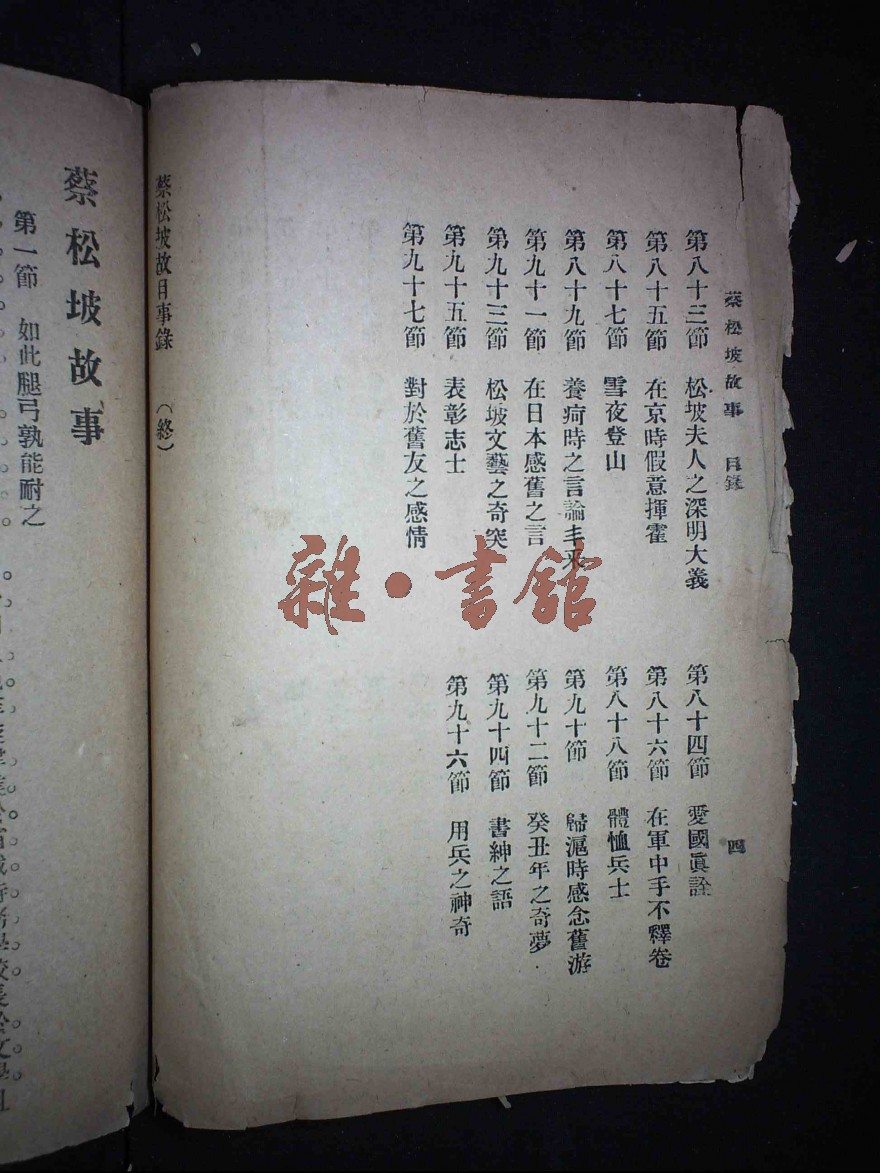 蔡松坡故事 目錄 四
第八十三節 松坡夫人之深明大義
第八十四節 愛國眞詮
第八十五節 在京時假意揮霍
第八十六節 在軍中手不釋卷
第八十七節 雪夜登山
第八十八節 體恤兵士
第八十九節 養疴時之言論丰采
第九十節 歸滬時感念舊游
第九十一節 在日本感舊之言
第九十二節 癸丑年之奇夢
第九十三節 松坡文藝之奇突
第九十四節 書紳之語
第九十五節 表彰志士
第九十六節 用兵之神奇
第九十七節 對於舊友之感情
蔡松坡故日事錄 （終）
雜·書館
蔡松坡故事
第一節 如此腿弓孰能耐之